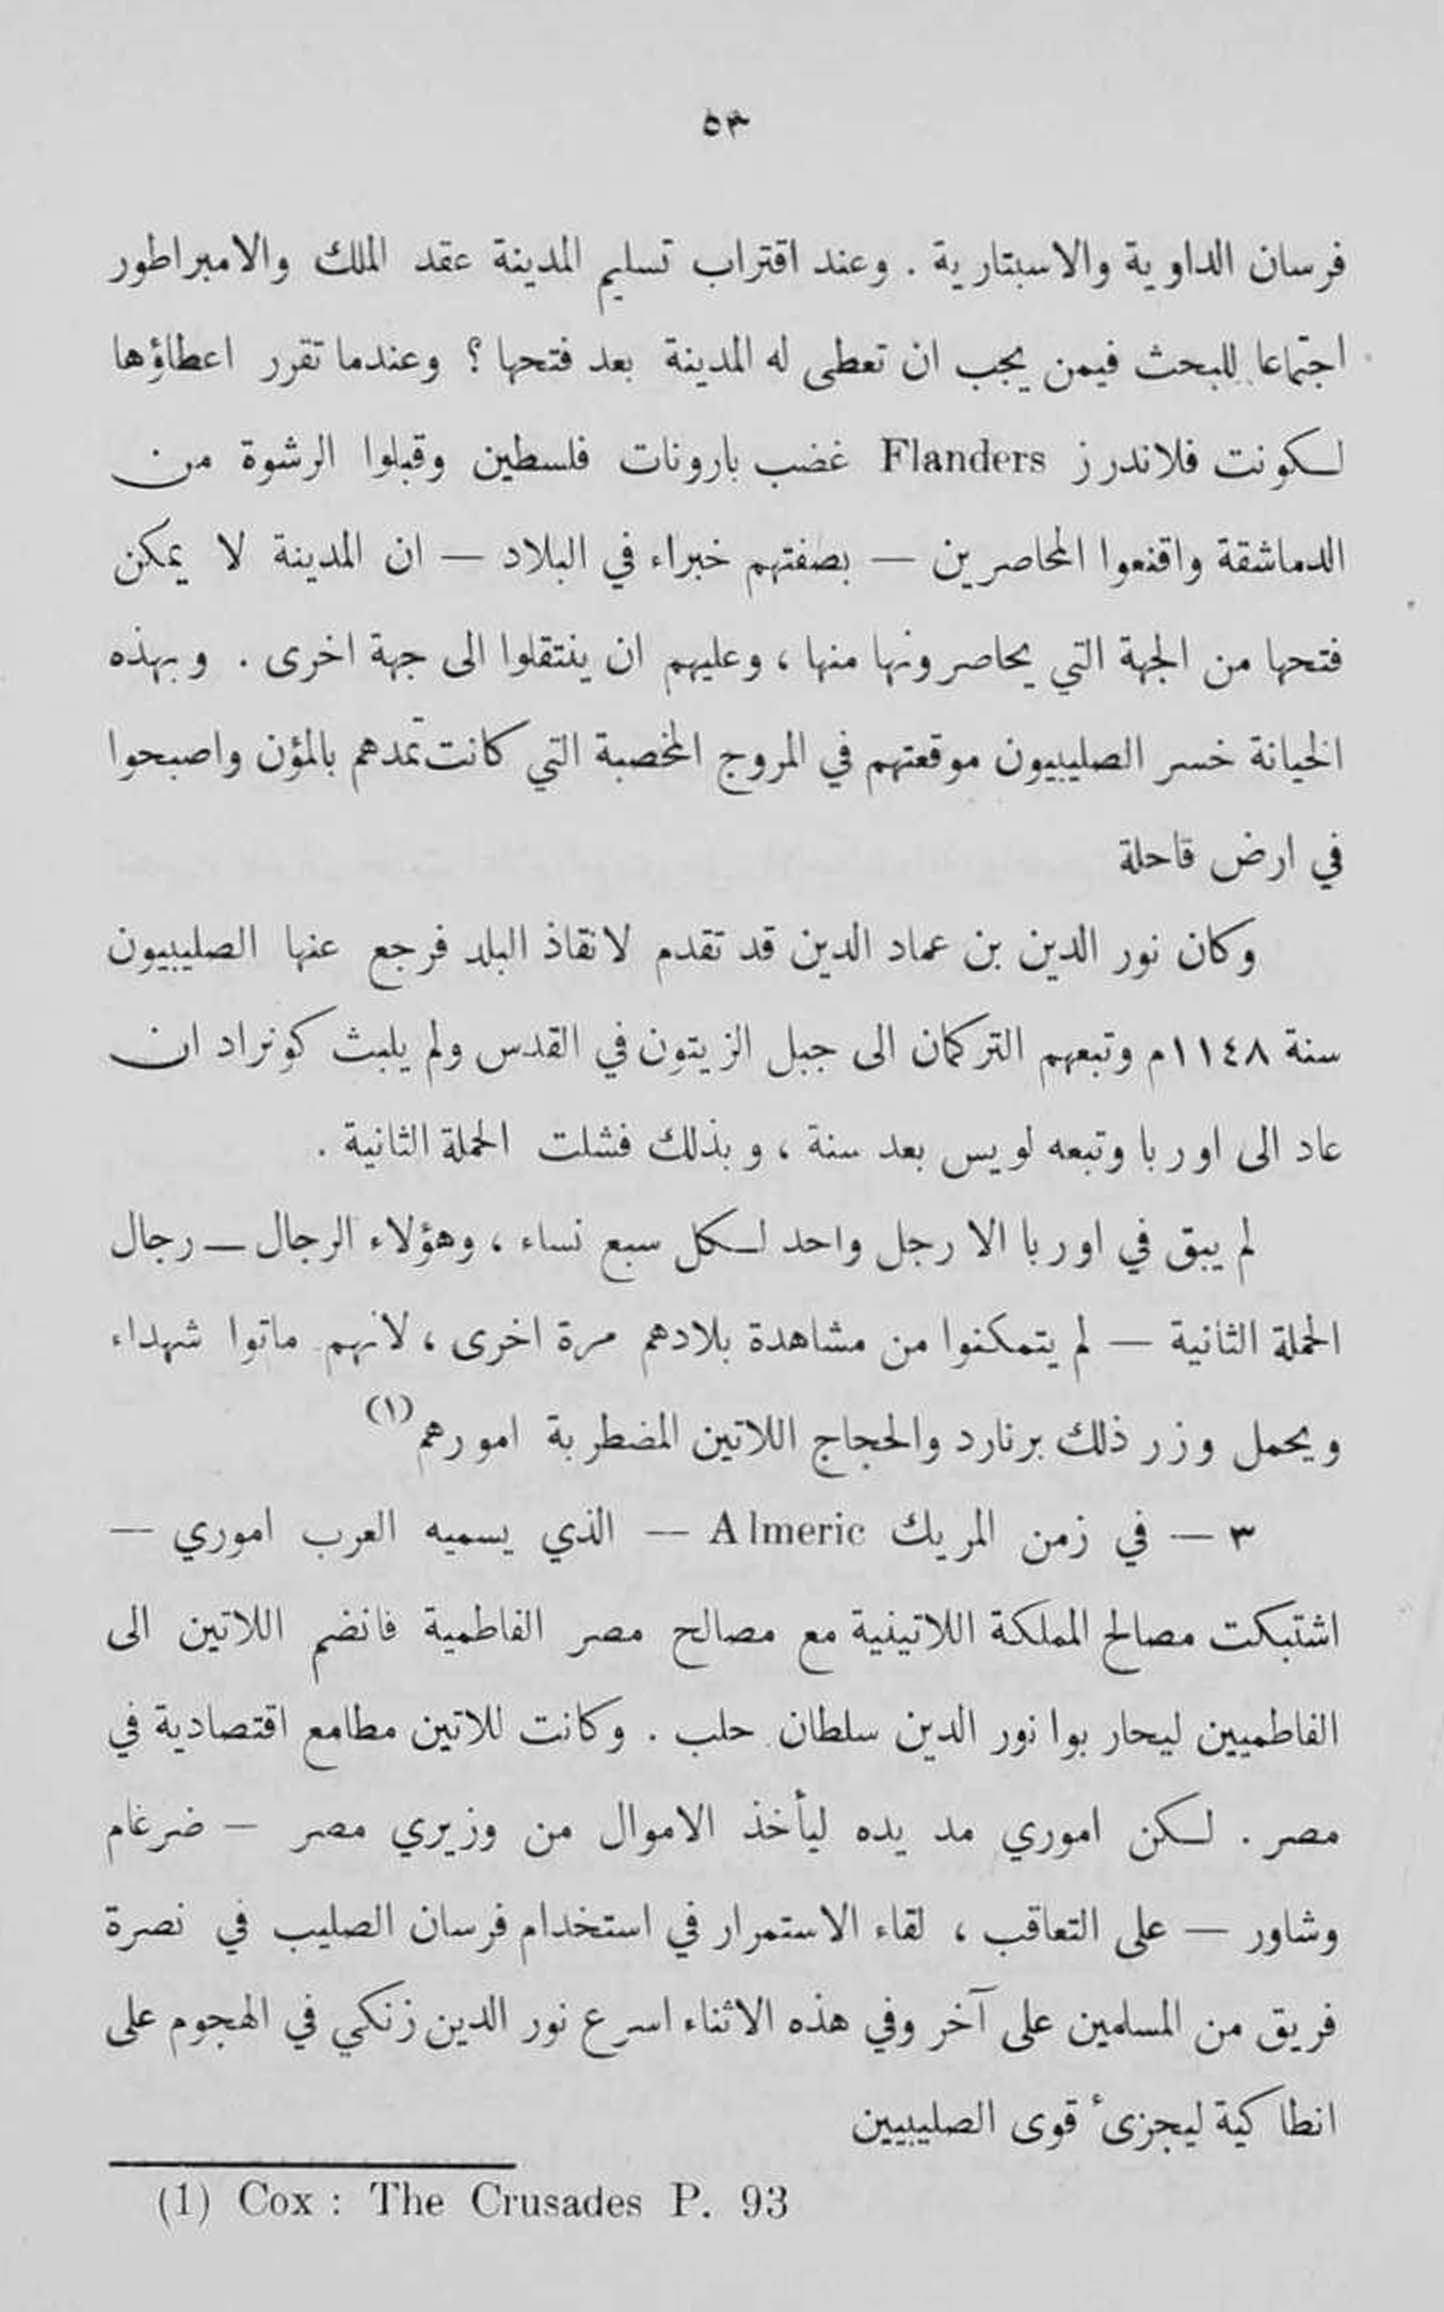 ٥٣
فرسان الداوية والاسبتارية . وعند اقتراب تسليم المدينة عقد الملك والامبراطور
اجتماعا للبحث فيمن يجب ان تعطى له المدينة بعد فتحها ؟ وعندما تقرر اعطاؤها
لكونت فلاندرز Flanders غضب بارونات فلسطين وقبلوا الرشوة من
الدماشقة واقنعوا المحاصرين — بصفتهم خبراء في البلاد — ان المدينة لا يمكن
فتحها من الجهة التي يحاصرونها منها ، وعليهم ان ينتقلوا الى جهة اخرى . وبهذه
الخيانة خسر الصليبيون موقعتهم في المروج المخصبة التي كانت تمدهم بالمؤن واصبحوا
في ارض قاحلة
وكان نور الدين بن عماد الدين قد تقدم لانقاذ البلد فرجع عنها الصليبيون
سنة ١١٤٨م وتبعهم التركمان الى جبل الزيتون في القدس ولم يلبث كونراد ان
عاد الى اوربا وتبعه لويس بعد سنة ، وبذلك فشلت الحملة الثانية .
لم يبق في اوربا الا رجل واحد لكل سبع نساء ، وهؤلاء الرجال — رجال
الحملة الثانية — لم يتمكنوا من مشاهدة بلادهم مرة اخرى ، لانهم ماتوا شهداء
ويحمل وزر ذلك برنارد والحجاج اللاتين المضطربة امورهم (١)
٣ — في زمن المريك Almeric — الذي يسميه العرب اموري —
اشتبكت مصالح المملكة اللاتينية مع مصالح مصر الفاطمية فانضم اللاتين الى
الفاطميين ليحاربوا نور الدين سلطان حلب . وكانت للاتين مطامع اقتصادية في
مصر . لكن اموري مد يده ليأخذ الاموال من وزيري مصر — ضرغام
وشاور — على التعاقب ، لقاء الاستمرار في استخدام فرسان الصليب في نصرة
فريق من المسلمين على آخر وفي هذه الاثناء اسرع نور الدين زنكي في الهجوم على
انطاكية ليجزىء قوى الصليبيين
(1) Cox : The Crusades P. 93